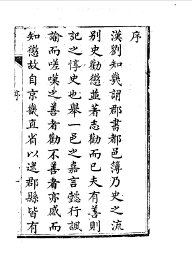 序
漢劉知幾謂郡書都邑簿乃史之流
別史勸懲並著志勸而已夫有善則
記之惇史也舉一邑之嘉言懿行諷
諭而嗟嘆之善者勸不善者亦感而
知懲故自京畿直省以迄郡縣皆有
序